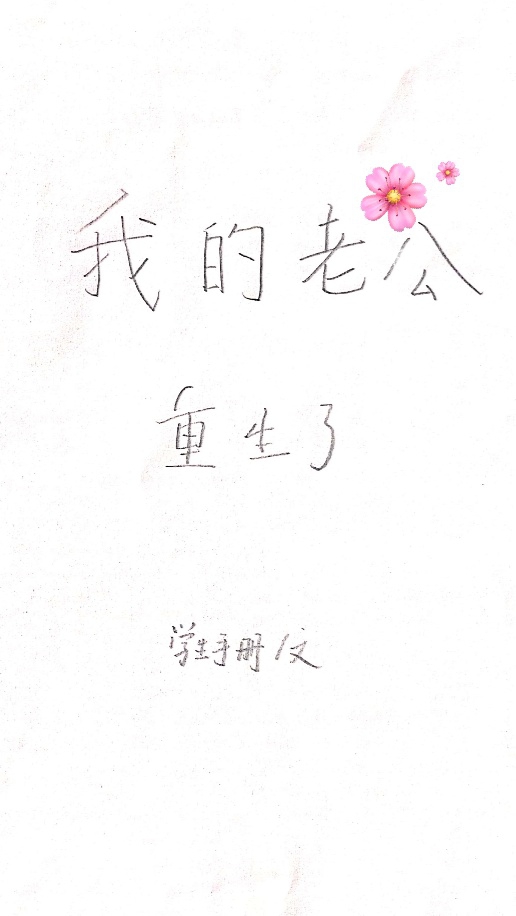 我的老公
重生了
学生手册/文